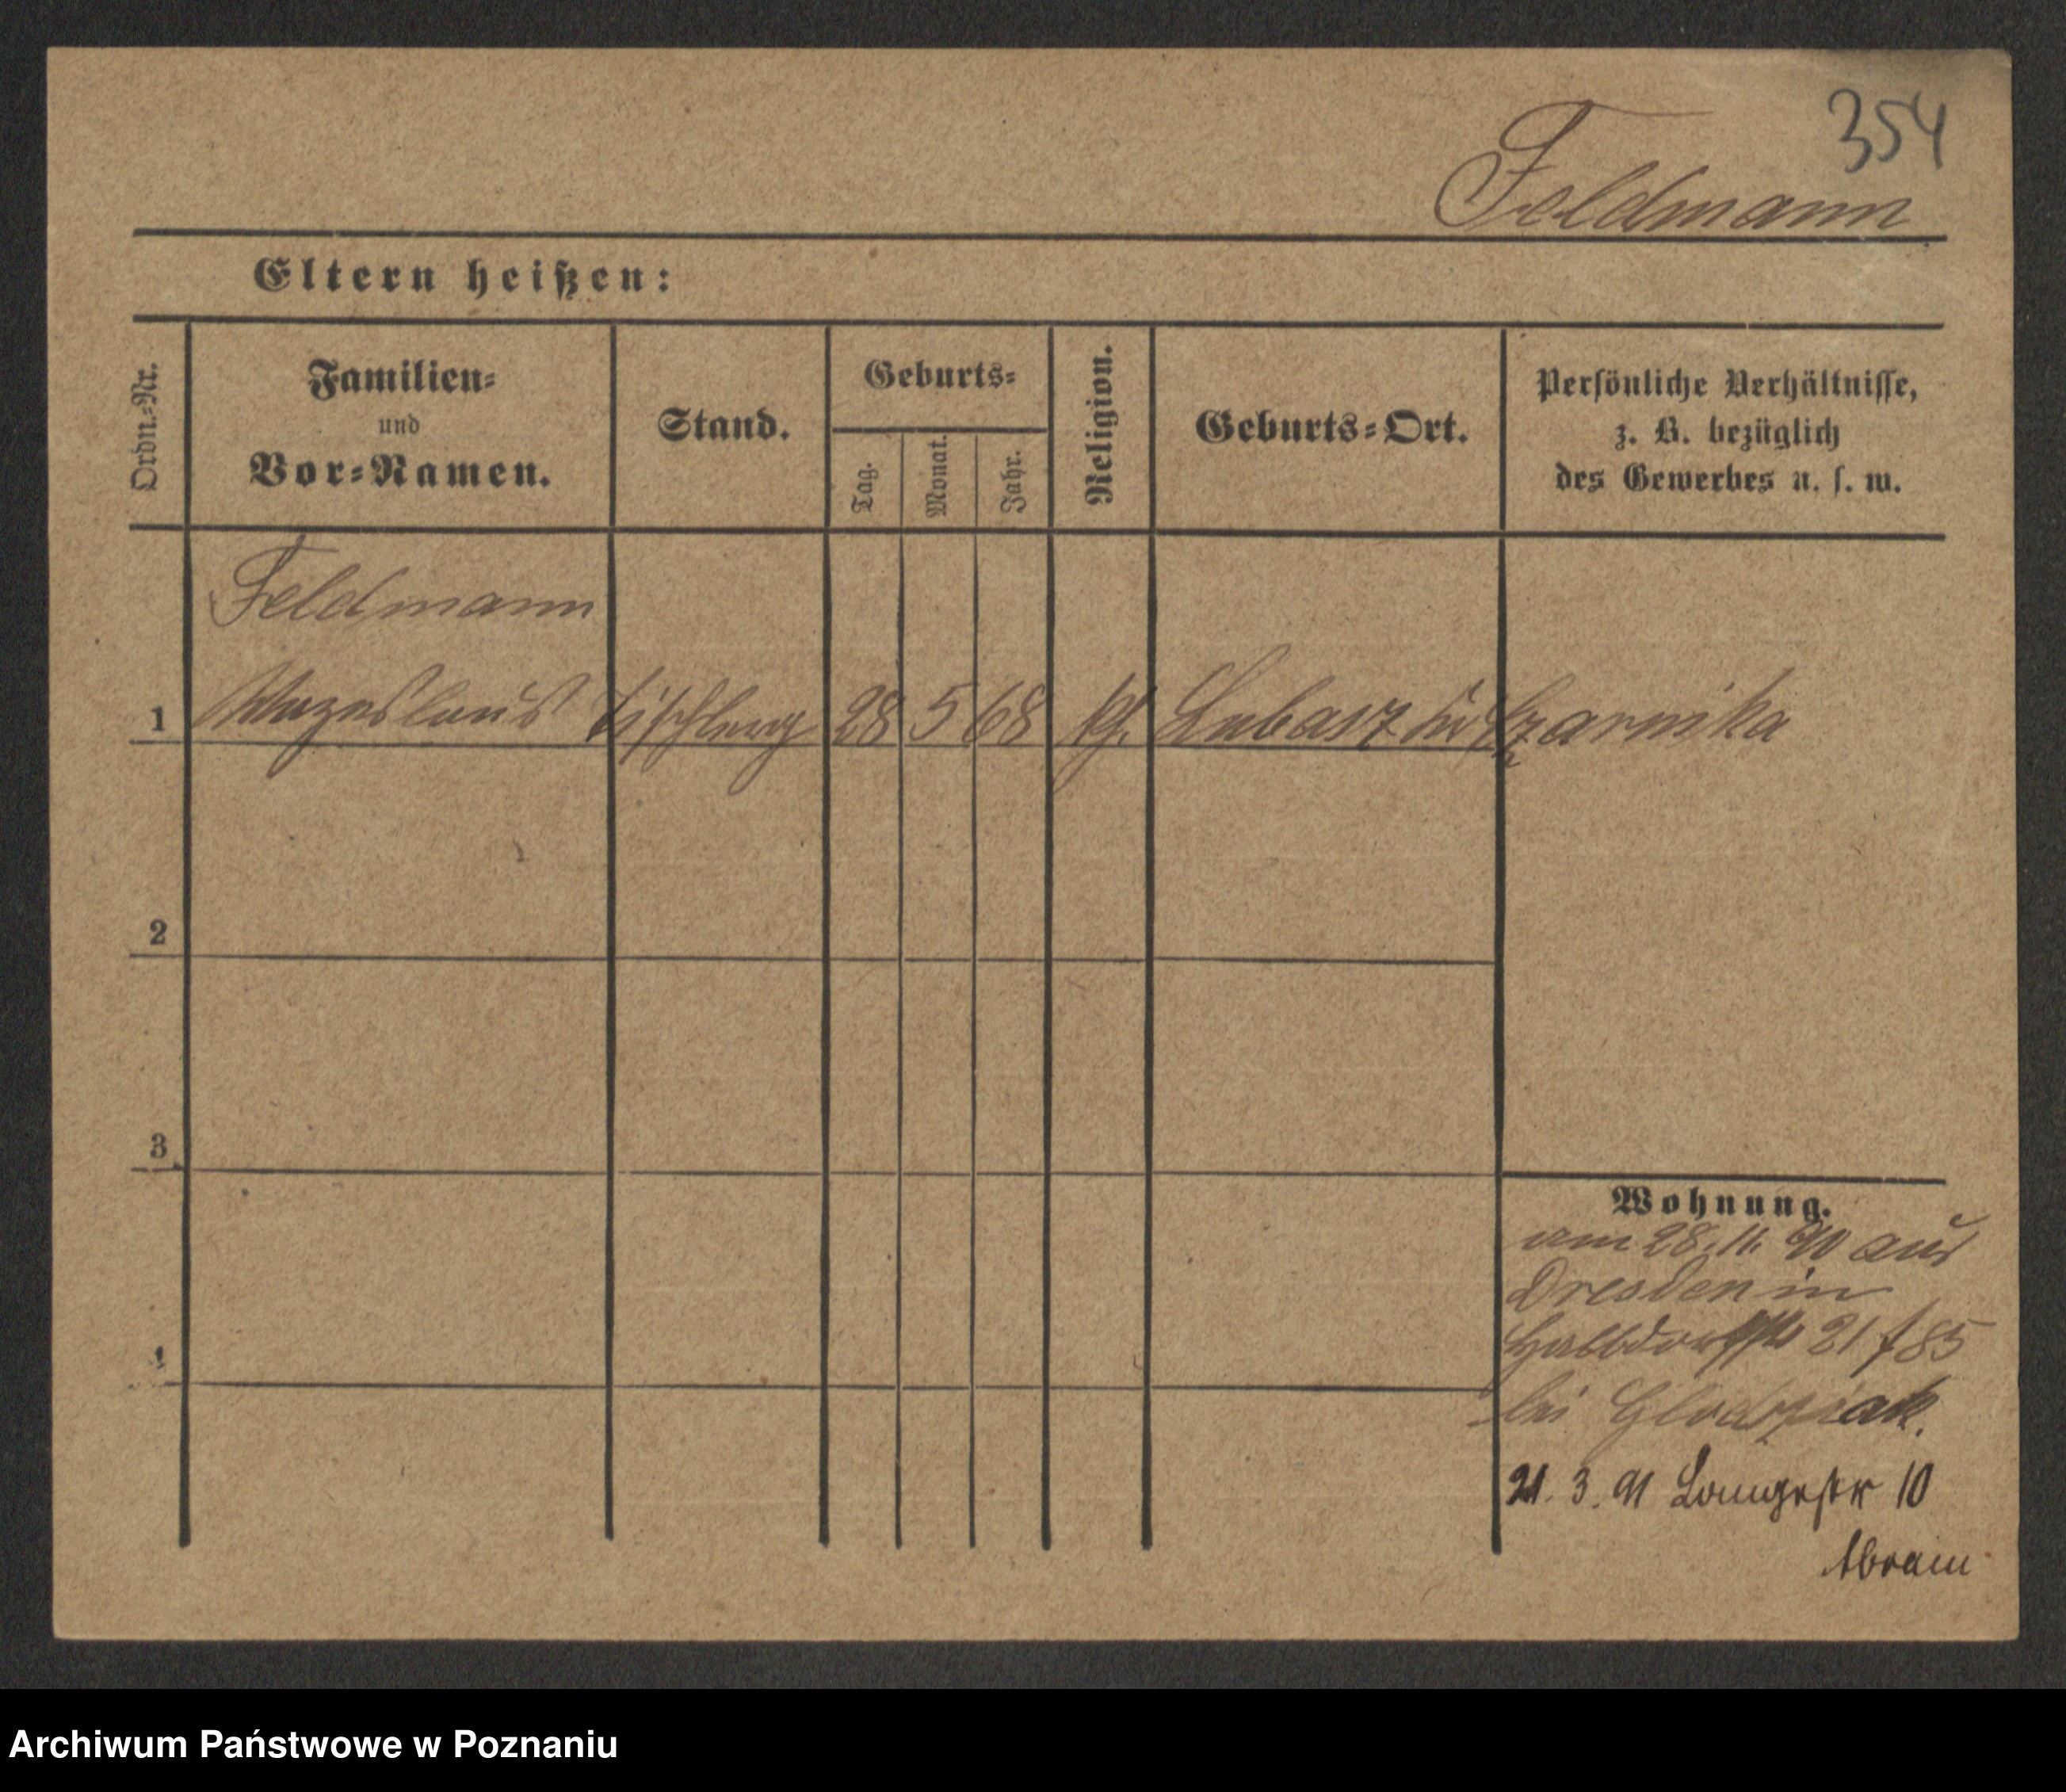 354
Feldmann
Eltern heißen:
Ordn.=Nr.
Familien=
und
Vor=Namen.
Stand.
Geburts=
Tag.
Monat.
Jahr.
Religion.
Geburts=Ort.
Persönliche Verhältnisse,
z. B. bezüglich
des Gewerbes u. s. w.
Feldmann
1 Wazeslaus 28 5 68 Lubasz Czarnika
2
3
4
Wohnung.
am 28. 11. 90 aus
Dresden in
Halbdorfstr 21 f 85
bei Glodziak.
21. 3. 91 Langestr 10
Abram
Archiwum Państwowe w Poznaniu